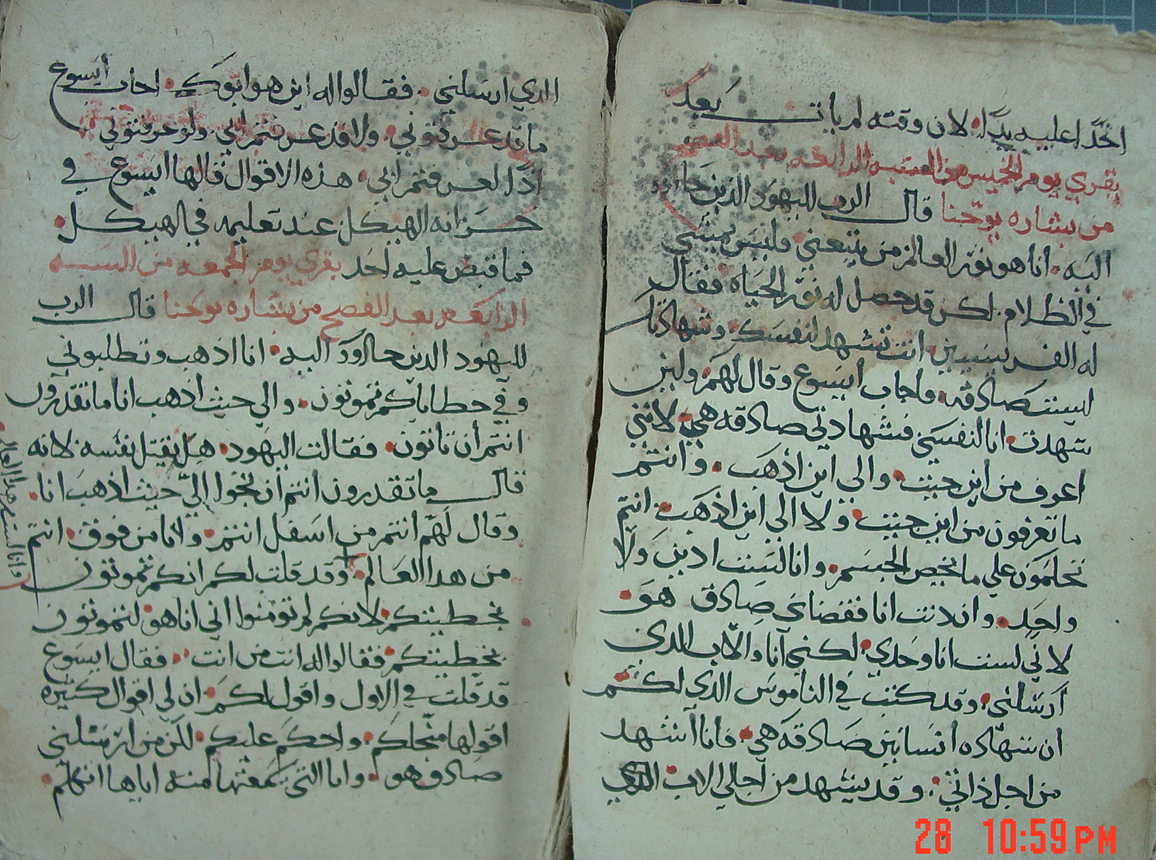 احدًا عليه يدًا. لان وقته لم يات بعد
يقري يوم الخميس من السبه الرابعه بعد الفصح
من بشاره يوحنا قال الرب لليهود الدين جااوو
اليه. انا هو نور العالم من يتبعني وليس يمشي
في الظلام. لكن قد حصل له نور الحياه فقال
له الفريسيين انت تشهد لنفسك. وشهادتك
ليست صادقه. واجاب ايسوع وقال لهم. ولين
شهدت انا لنفسي فشهادتي صادقه هي. لانني
اعرف من اين جيت. والي اين اذهب. وانتم
ما تعرفون من اين جيت. ولا الي اين اذهب. انتم
تحكمون علي ما يخص الجسم. وانا لست ادين ولا
واحد. وان دنت انا فقضاي صادق هو.
لاني لست انا وحدي. لكني انا والاب الدي
ارسلني. وقد كتب في الناموس الدي لكم
ان شهاده انسانين صادقه هي. فانا اشهد
من اجل ذاتي. وقد يشهد من اجلي الاب الدي
الدي ارسلني. فقالوا له اين هو ابوك. اجاب ايسوع
ما قد عرفتوني. ولا قد عرفتم ابي. ولو عرفتوني
اذًا لعرفتم ابي. هذه الاقوال قالها ايسوع في
خزانه الهيكل عند تعليمه في الهيكل.
فما قبض عليه احد يقري يوم الجمعه من السبه
الرابعه بعد الفصح من بشاره يوحنا قال الرب
لليهود الدين جااوو اليه. انا اذهب وتطلبوني
وفي خطاياكم تموتون. والي حيث اذهب انا ما تقدرون
انتم ان تاتون. فقالت اليهود. هل يقتل نفسه لانه
قال ما تقدرون انتم ان تجوا الي حيث اذهب انا.
وقال لهم انتم من اسفل انتم. وانا من فوق. انتم
من هدا العالم. وقد قلت لكم انكم تموتون
بخطيتكم. لانكم لم تومنوا اني انا هو. لتموتون
بخطيتكم. فقالوا له انت من انت. فقال ايسوع
قد قلت في الاول واقول لكم. ان لي اقوال كثيره
اقولها منجلكم. واحكم عليكم. لكن من ارسلني
صادق هو. وانا التي سمعتها منه اياها اتكلم.
وانا لست من هدا العالم
28 10:59 PM